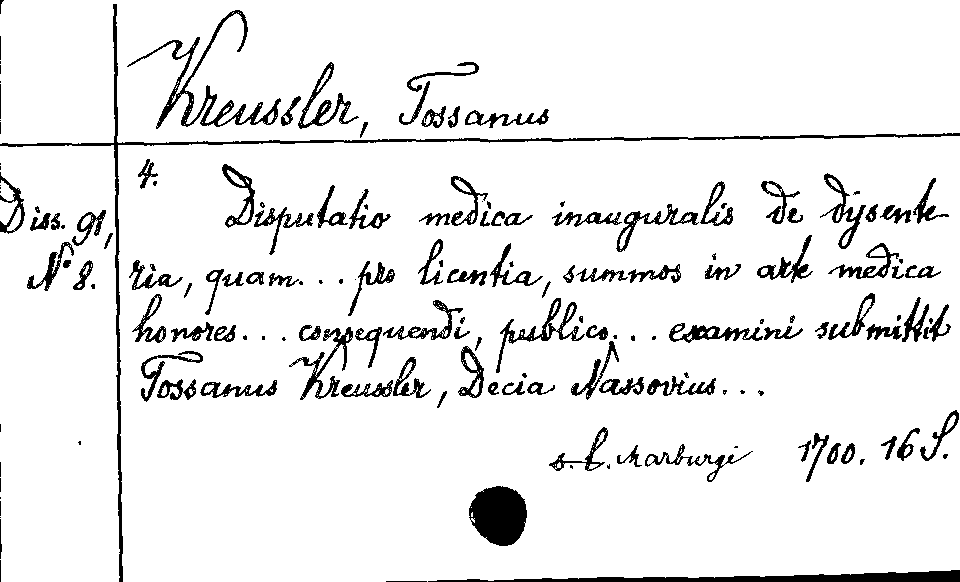 Kreussler, Tossanus
4.
Diss. 91,
No 8.
Disputatio medica inauguralis de dysente-
ria, quam... pro licentia, summos in arte medica
honores... consequendi, publico... examini submittit
Tossanus Kreussler, Decia Nassovius...
s. l. Marburgi 1700. 16 S.